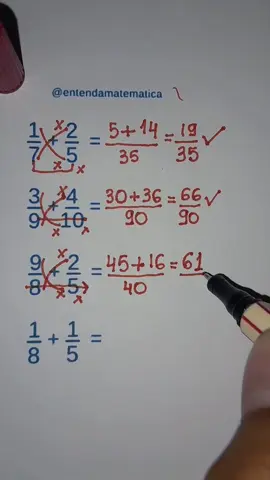 @entendamatematica
1/7 + 2/5 = 5+14/35 = 19/35 ✓
3/9 + 4/10 = 30+36/90 = 66/90 ✓
9/8 + 2/5 = 45+16/40 = 61
1/8 + 1/5 =